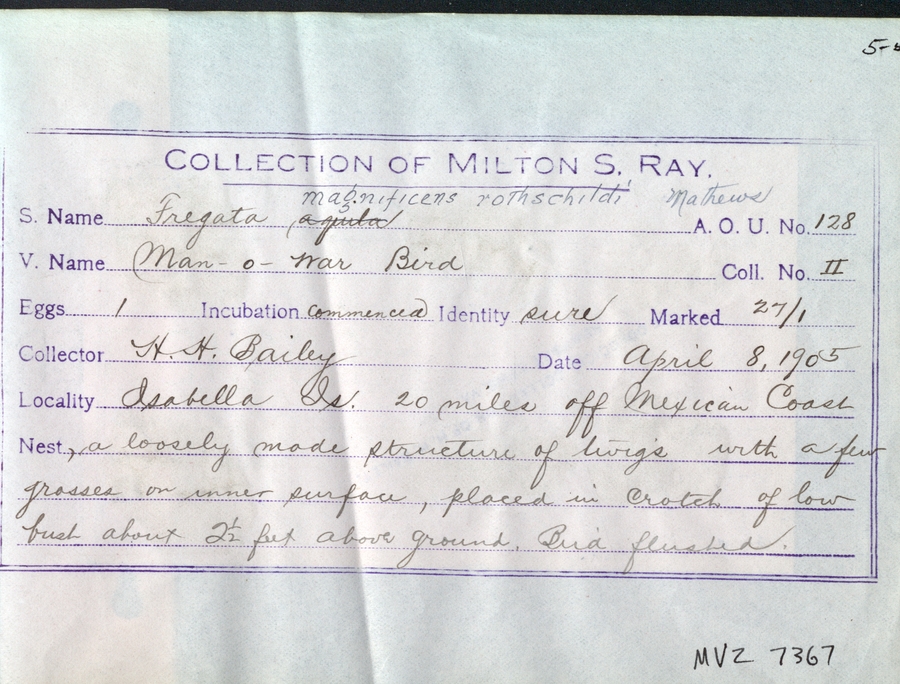 COLLECTION OF MILTON S. RAY.
magnificens rothschildi Mathews
S. Name Fregata aquila A. O. U. No. 128
V. Name Man-o-war Bird Coll. No. II
Eggs 1 Incubation commenced Identity sure Marked 27/1
Collector H. H. Bailey Date April 8, 1905
Locality Isabella Is. 20 miles off Mexican Coast
Nest, a loosely made structure of twigs with a few
grasses on inner surface, placed in crotch of low
bush about 2½ feet above ground. Bird flushed.
MVZ 7367